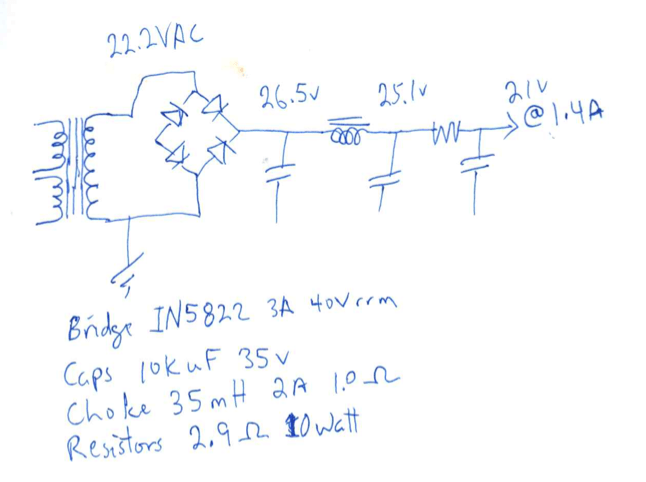 22.2VAC
26.5v
25.1v
21V
@1.4A
Bridge IN5822 3A 40Vrrm
Caps 10K uF 35v
Choke 35mH 2A 1.0 Ω
Resistors 2.9 Ω 10Watt